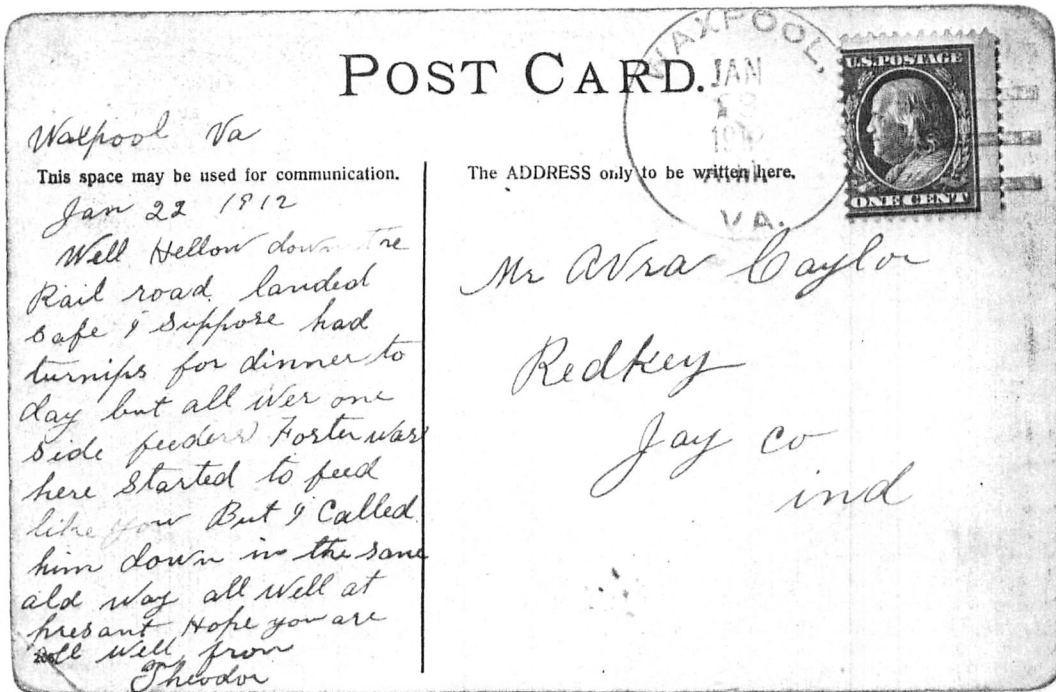 POST CARD.
WAXPOOL,
JAN
191
VA.
U.S. POSTAGE
ONE CENT
Waxpool Va
This space may be used for communication.
Jan 22 1912
Well Hellow down the
Rail road. landed
safe I suppose had
turnips for dinner to
day but all wer one
side feeders Foster was
here Started to feed
like you But I Called
him down in the same
old way all well at
presant Hope you are
all well from
Theodor
The ADDRESS only to be written here.
Mr Avra Caylor
Redkey
Jay co
ind